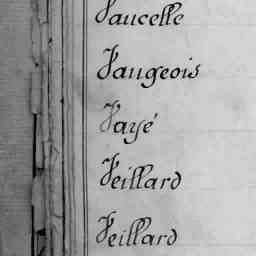 Vaucelle
Vaugeois
Vayé
Veillard
Veillard